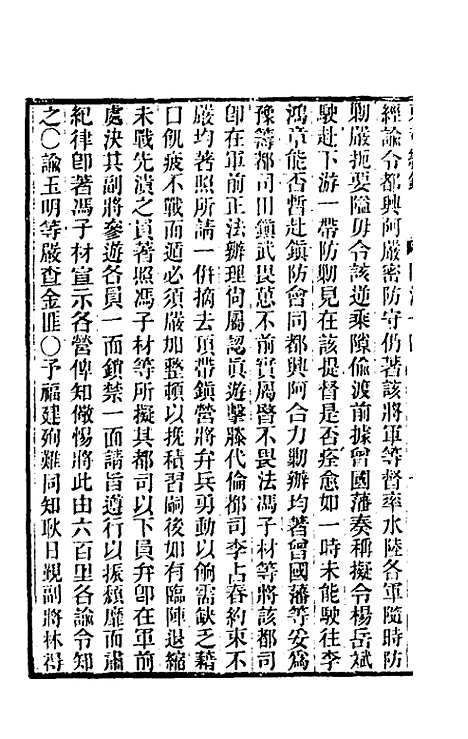 經諭令都興阿嚴密防守仍著該將軍等督率水陸各軍隨時防
勦嚴扼要隘毋令該逆乘隙偷渡前據曾國藩奏稱擬令楊岳斌
駛赴下游一帶防勦見在該提督是否痊愈如一時未能駛往李
鴻章能否暫赴鎮防會同都興阿合力勦辦均著曾國藩等妥爲
豫籌都司田鎮武畏葸不前實屬瞖不畏法馮子材等將該都司
卽在軍前正法辦理尙屬認真遊擊滕代倫都司李占春約束不
嚴均著照所請一併摘去頂帶鎮營將弁兵勇動以餉需缺乏藉
口飢疲不戰而遁必須嚴加整頓以挽積習嗣後如有臨陣退縮
未戰先潰之員著照馮子材等所擬其都司以下員弁卽在軍前
處決其副將參遊各員一面鎖禁一面請旨遵行以振頹靡而肅
紀律卽著馮子材宣示各營俾知儆惕將此由六百里各諭令知
之〇諭玉明等嚴查金匪〇予福建殉難同知耿日覲副將林得